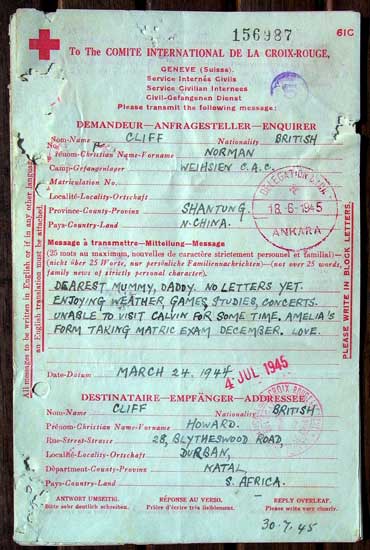 156987
61C
To The COMITE INTERNATIONAL DE LA CROIX-ROUGE,
GENEVE (Suisse).
Service Internés Civils
Service Civilian Internees
Civil-Gefangenen Dienst
Please transmit the following message:
DEMANDEUR—ANFRAGESTELLER—ENQUIRER
Nom-Name CLIFF Nationality BRITISH
Prénom-Christian Name-Vorname NORMAN
Camp-Gefangenlager WEIHSIEN C.A.C.
Matriculation No.
Localité-Locality-Ortschaft
Province-County-Provins SHANTUNG.
Pays-Country-Land N-CHINA.
DELEGATION
18-6-1945
ANKARA
Message à transmettre-Mitteilung-Message
(25 mots au maximum, nouvelles de caractère strictement personnel et familial)—
(nicht über 25 Worte, nur persönliche Familiennachrichten)—(not over 25 words,
family news of strictly personal character).
DEAREST MUMMY, DADDY. NO LETTERS YET.
ENJOYING WEATHER, GAMES, STUDIES, CONCERTS.
UNABLE TO VISIT CALVIN FOR SOME TIME. AMELIA'S
FORM TAKING MATRIC EXAM DECEMBER. LOVE.
Date-Datum MARCH 24. 1944
4 JUL 1945
DESTINATAIRE—EMPFÄNGER—ADDRESSEE
Nom-Name CLIFF Nationality BRITISH
Prénom-Christian Name-Vorname HOWARD.
Rue-Street-Strasse 28, BLYTHESWOOD ROAD,
Localité-Locality-Ortschaft DURBAN,
Départment-County-Provins NATAL
Pays-Country-Land S. AFRICA.
ANTWORT UMSEITIG. RÉPONSE AU VERSO. REPLY OVERLEAF.
Bitte sehr deutlich schreiben. Prière d'écrire très lisiblement. Please write very clearly.
30.7.45
All messages to be written in English or if in any other language
an English translation must be attached.
PLEASE WRITE IN BLOCK LETTERS.